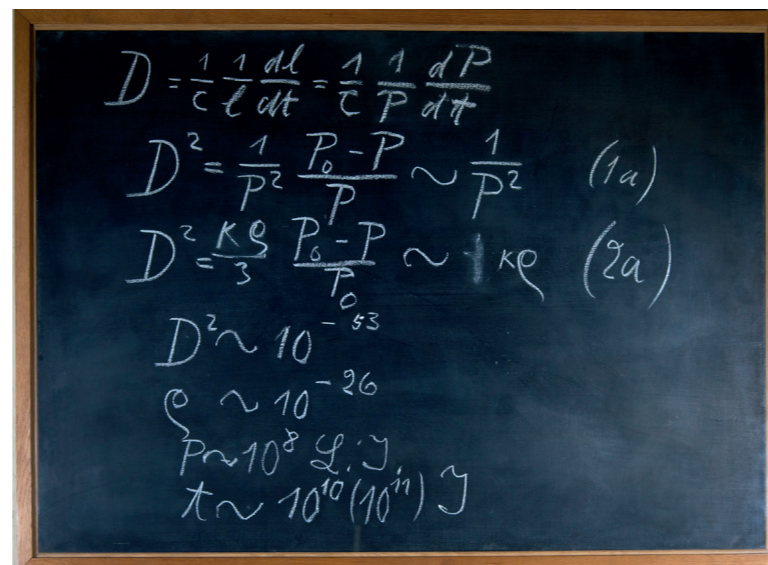 D = 1/c 1/l dl/dt = 1/c 1/P dP/dt
D² = 1/P² (P₀ − P)/P ~ 1/P² (1a)
D² = κρ/3 (P₀ − P)/P₀ ~ κρ (2a)
D² ~ 10⁻⁵³
ρ ~ 10⁻²⁶
P ~ 10⁸ L.J
t ~ 10¹⁰ (10¹¹) J